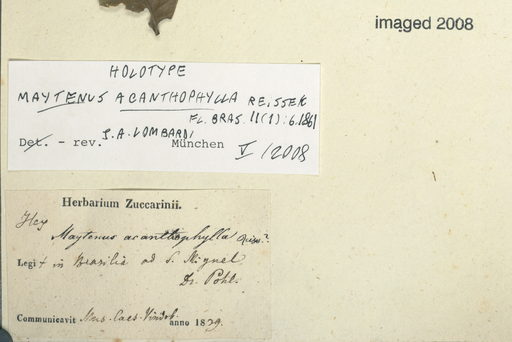 imaged 2008
HOLOTYPE
MAYTENUS ACANTHOPHYLLA REISSEK
FL. BRAS. 11(1):6.1861
Det. - rev. J.A. LOMBARDI München V/2008
Herbarium Zuccarinii.
Maytenus acanthophylla
Legit in Brasilia ad S. Miguel
Dr. Pohl.
Communicavit Mus. Caes. Vindob. anno 1839.